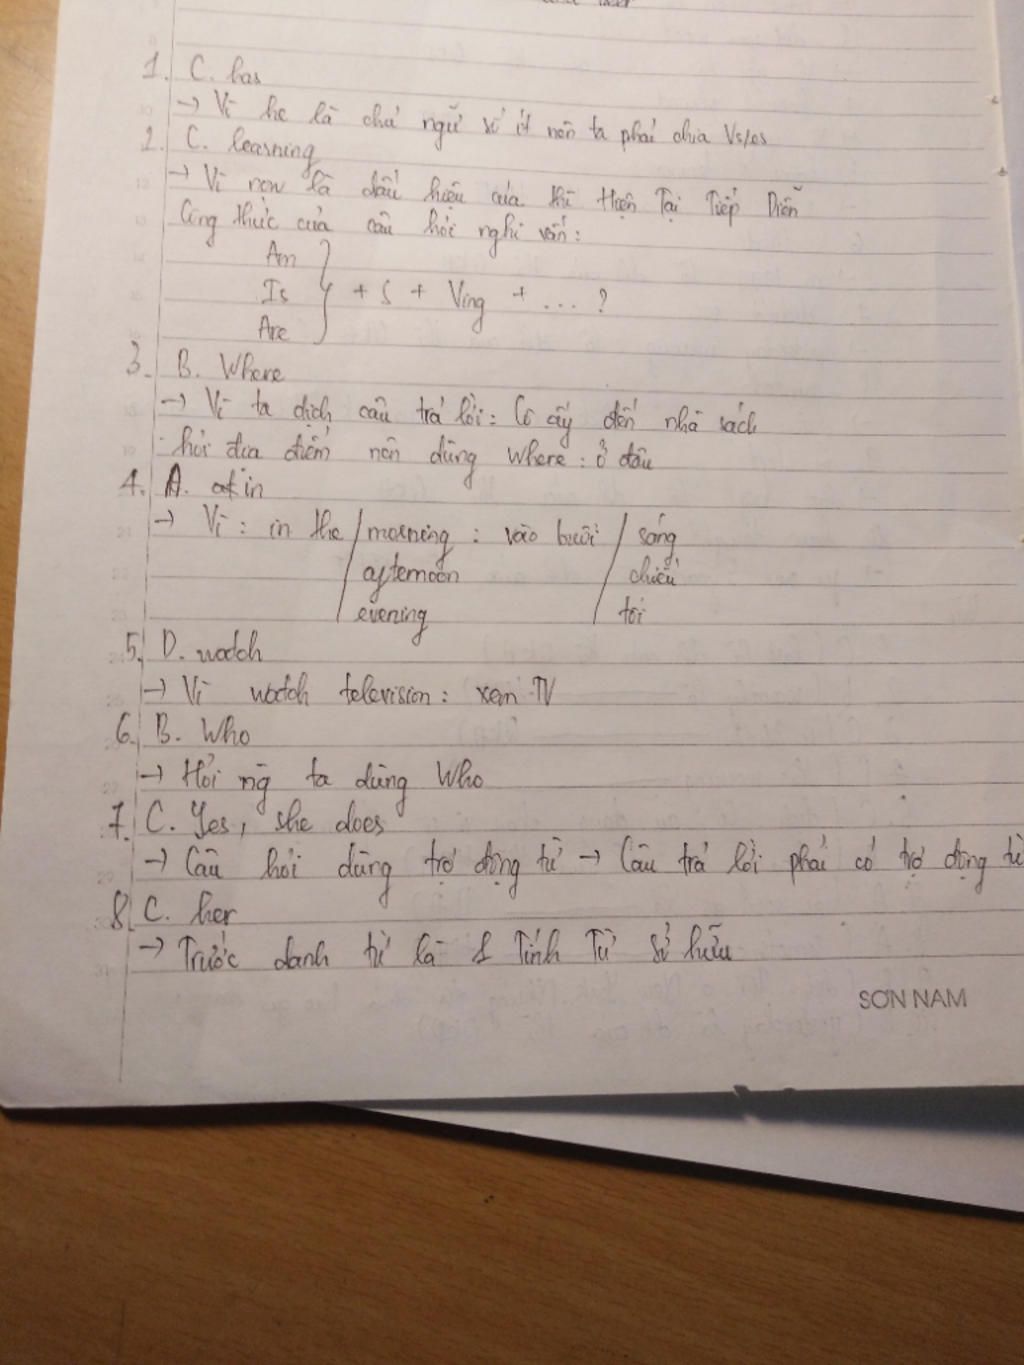 1. C. has
→ Vì he là chủ ngữ số ít nên ta phải chia Vs/es
2. C. learning
→ Vì now là dấu hiệu của thì Hiện Tại Tiếp Diễn
Công thức của câu hỏi nghi vấn:
Am
Is } + S + Ving + ... ?
Are
3. B. Where
→ Vì ta dịch câu trả lời: Cô ấy đến nhà sách
hỏi địa điểm nên dùng Where: ở đâu
4. A. in
→ Vì: in the / morning : vào buổi / sáng
afternoon chiều
evening tối
5. D. watch
→ Vì watch television: xem TV
6. B. Who
→ Hỏi ng ta dùng Who
7. C. Yes, she does
→ Câu hỏi dùng trợ động từ → Câu trả lời phải có trợ động từ
8. C. her
→ Trước danh từ là 1 Tính Từ sở hữu
SƠN NAM